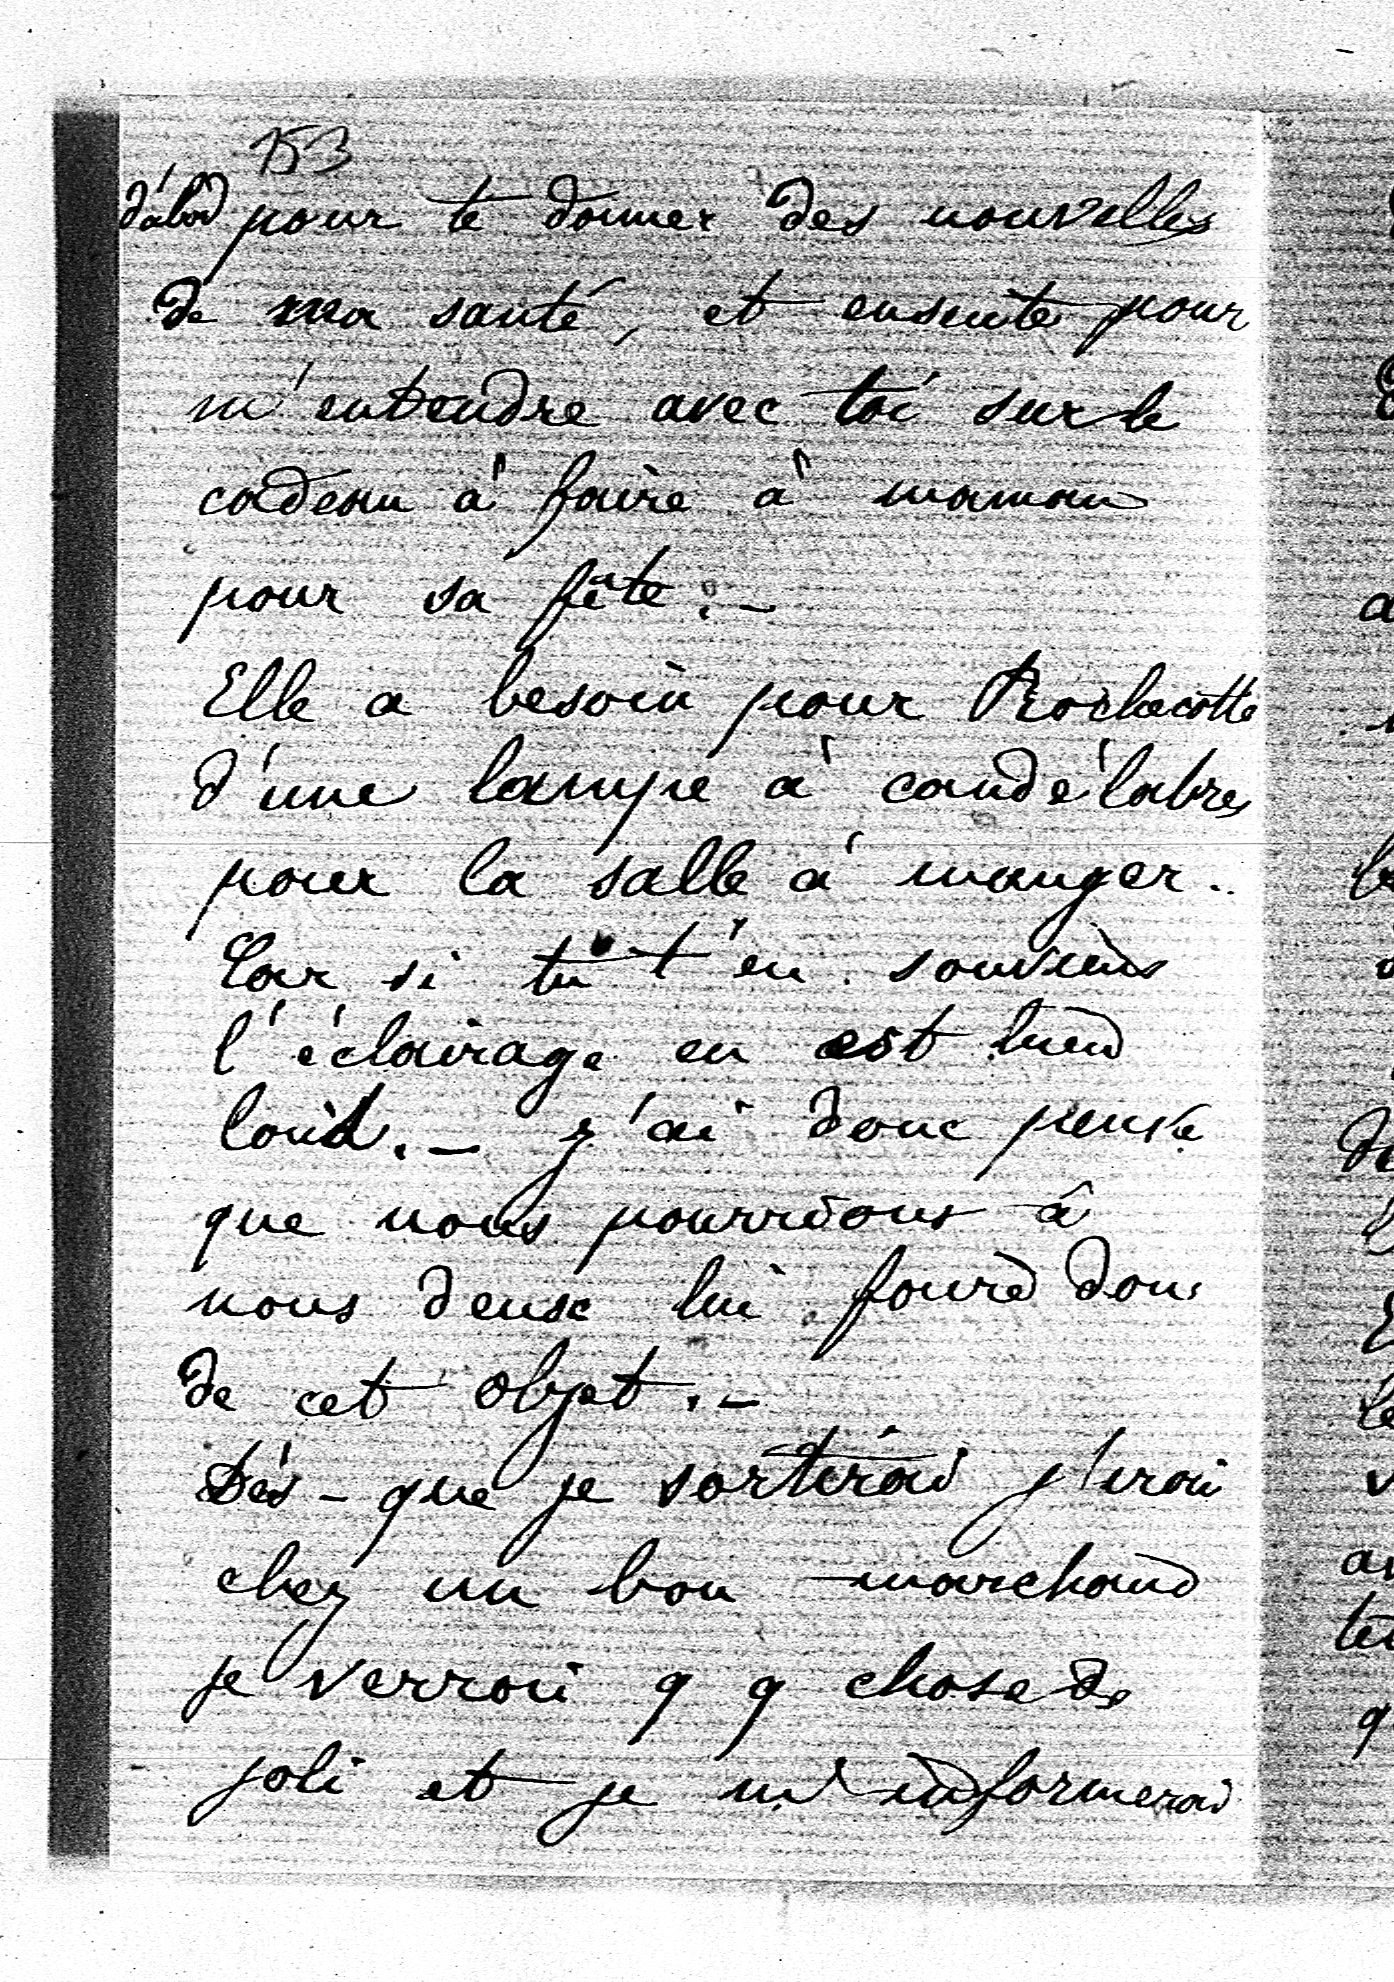 153
d'abord pour te donner des nouvelles
de ma santé, et ensuite pour
m'entendre avec toi sur le
cadeau à faire à maman
pour sa fête. -
Elle a besoin pour Rochecotte
d'une lampe à candélabres
pour la salle à manger..
Car si tu t'en souviens
l'éclairage en est bien
loin. - J'ai donc pensé
que nous pourrions à
nous deux lui faire don
de cet objet. -
Dès - que je sortirai j'irai
chez un bon marchand
je verrai q q chose de
joli et je m'informerai